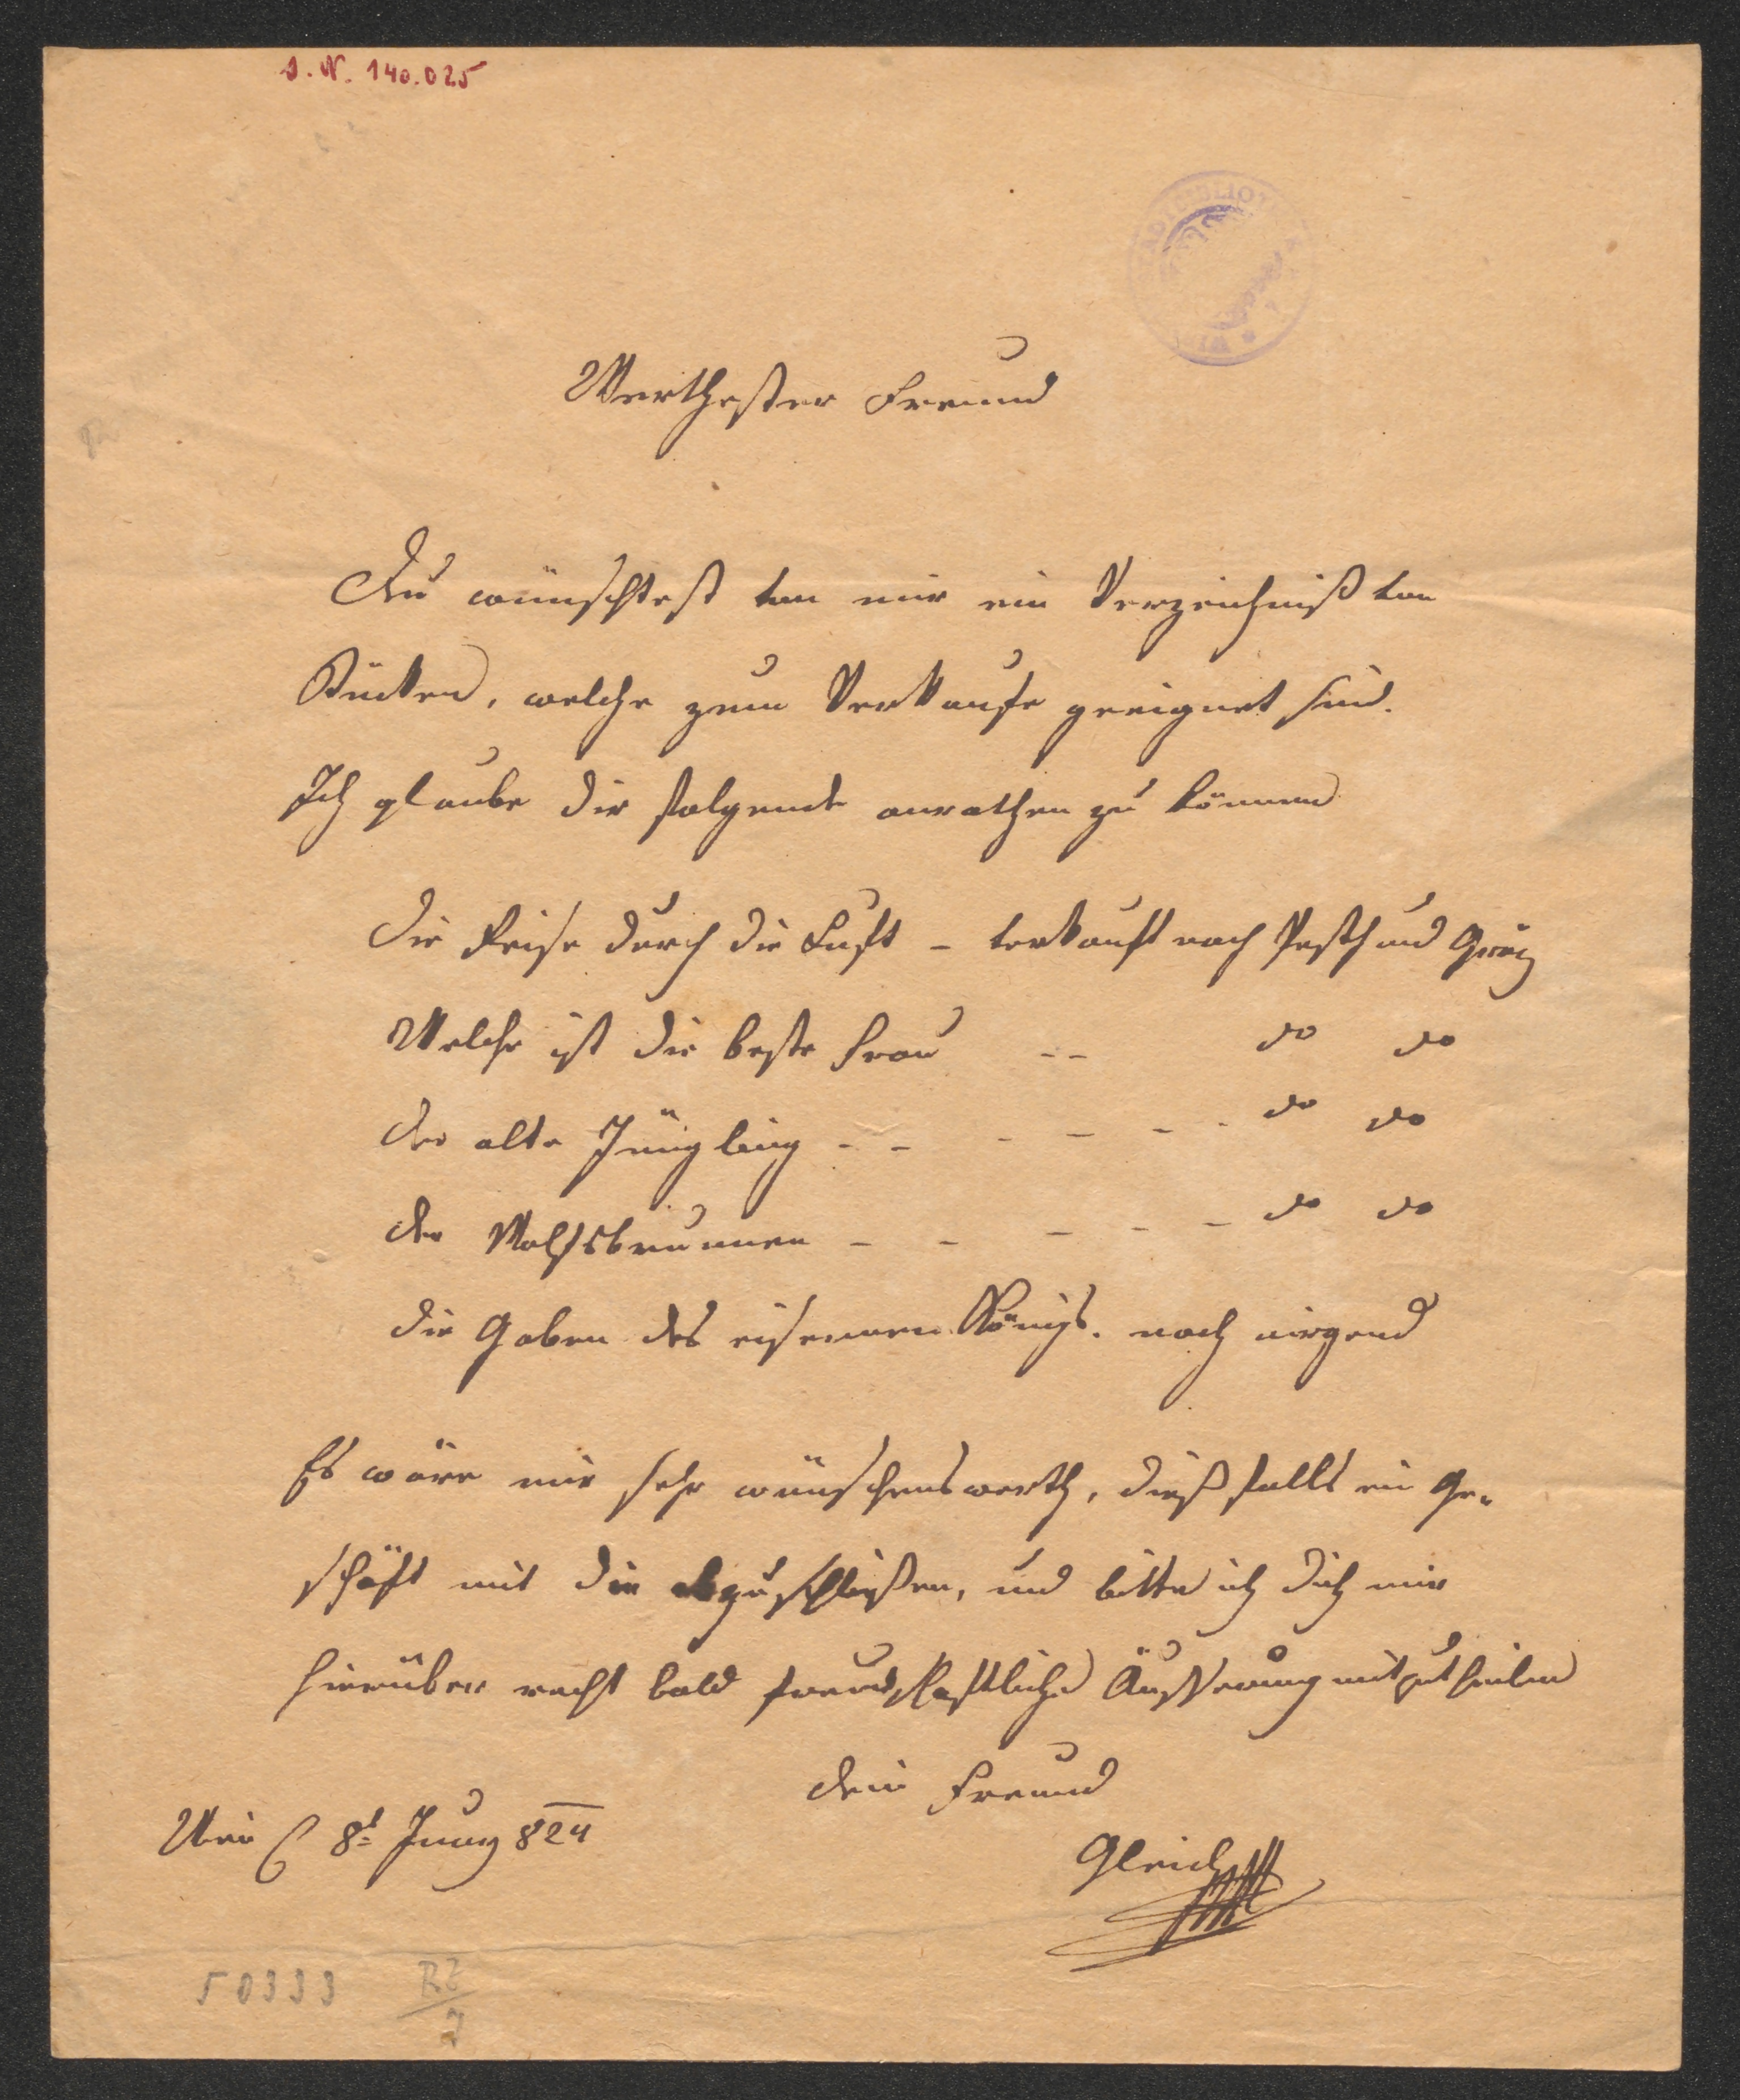 I. N. 140.025
Werthester Freund
Du wünschtest von mir ein Verzeichniß von
Stücken, welche zum Verkaufe geeignet sind.
Ich glaube dir folgende anrathen zu können
Die Reise durch die Luft – verkauft nach Pesth und Gräz
Welche ist die beste Frau - - do do
Der alte Jüngling - - - - - - do do
Der Wolfsbrunnen - - - - - do do
Die Gaben des eisernen Königs. noch nirgend
Es wäre mir sehr wünschenswerth, dießfalls ein Ge-
schäft mit dir abzuschließen, und bitte ich dich mir
hierüber recht bald freundschaftliche Äusserung mitzutheilen
Dein Freund
Wien 8t Juny 824
Gleich
50333